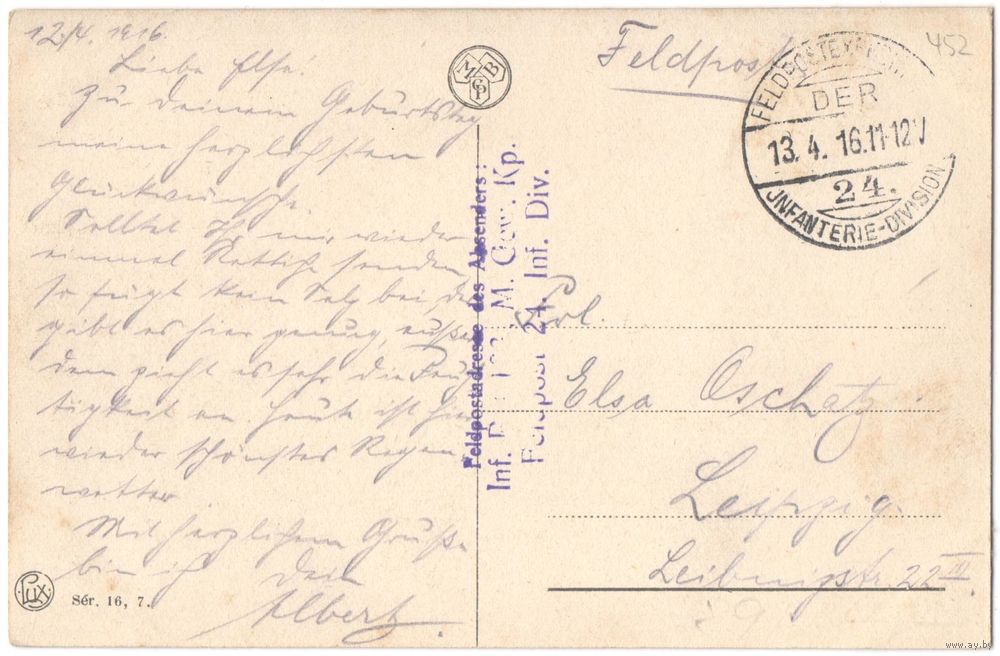 12./4. 1916.
Liebe Else!
Zu deinem Geburtstag
meine herzlichsten
Glückwünsche.
Solltet Ihr mir wieder
einmal Rettiche senden,
so fügt kein Salz bei, das
gibt es hier genug, außer
dem zieht es sehr die Feuch
tigkeit an. Heute ist hier
wieder schönstes Regen
wetter.
Mit herzlichem Gruße
bin ich Dein
Albert.
Lux
Sér. 16, 7.
M B
C P
Feldpostadresse des Absenders:
Inf. M. Gew. Kp.
Feldpost 24. Inf. Div.
Feldpost
452
FELDPOSTEXPED.
DER
13. 4. 16.11-12V
24.
INFANTERIE-DIVISION
Frl.
Elsa Oschatz
Leipzig.
Leibnizstr. 22 III.
www.ay.by